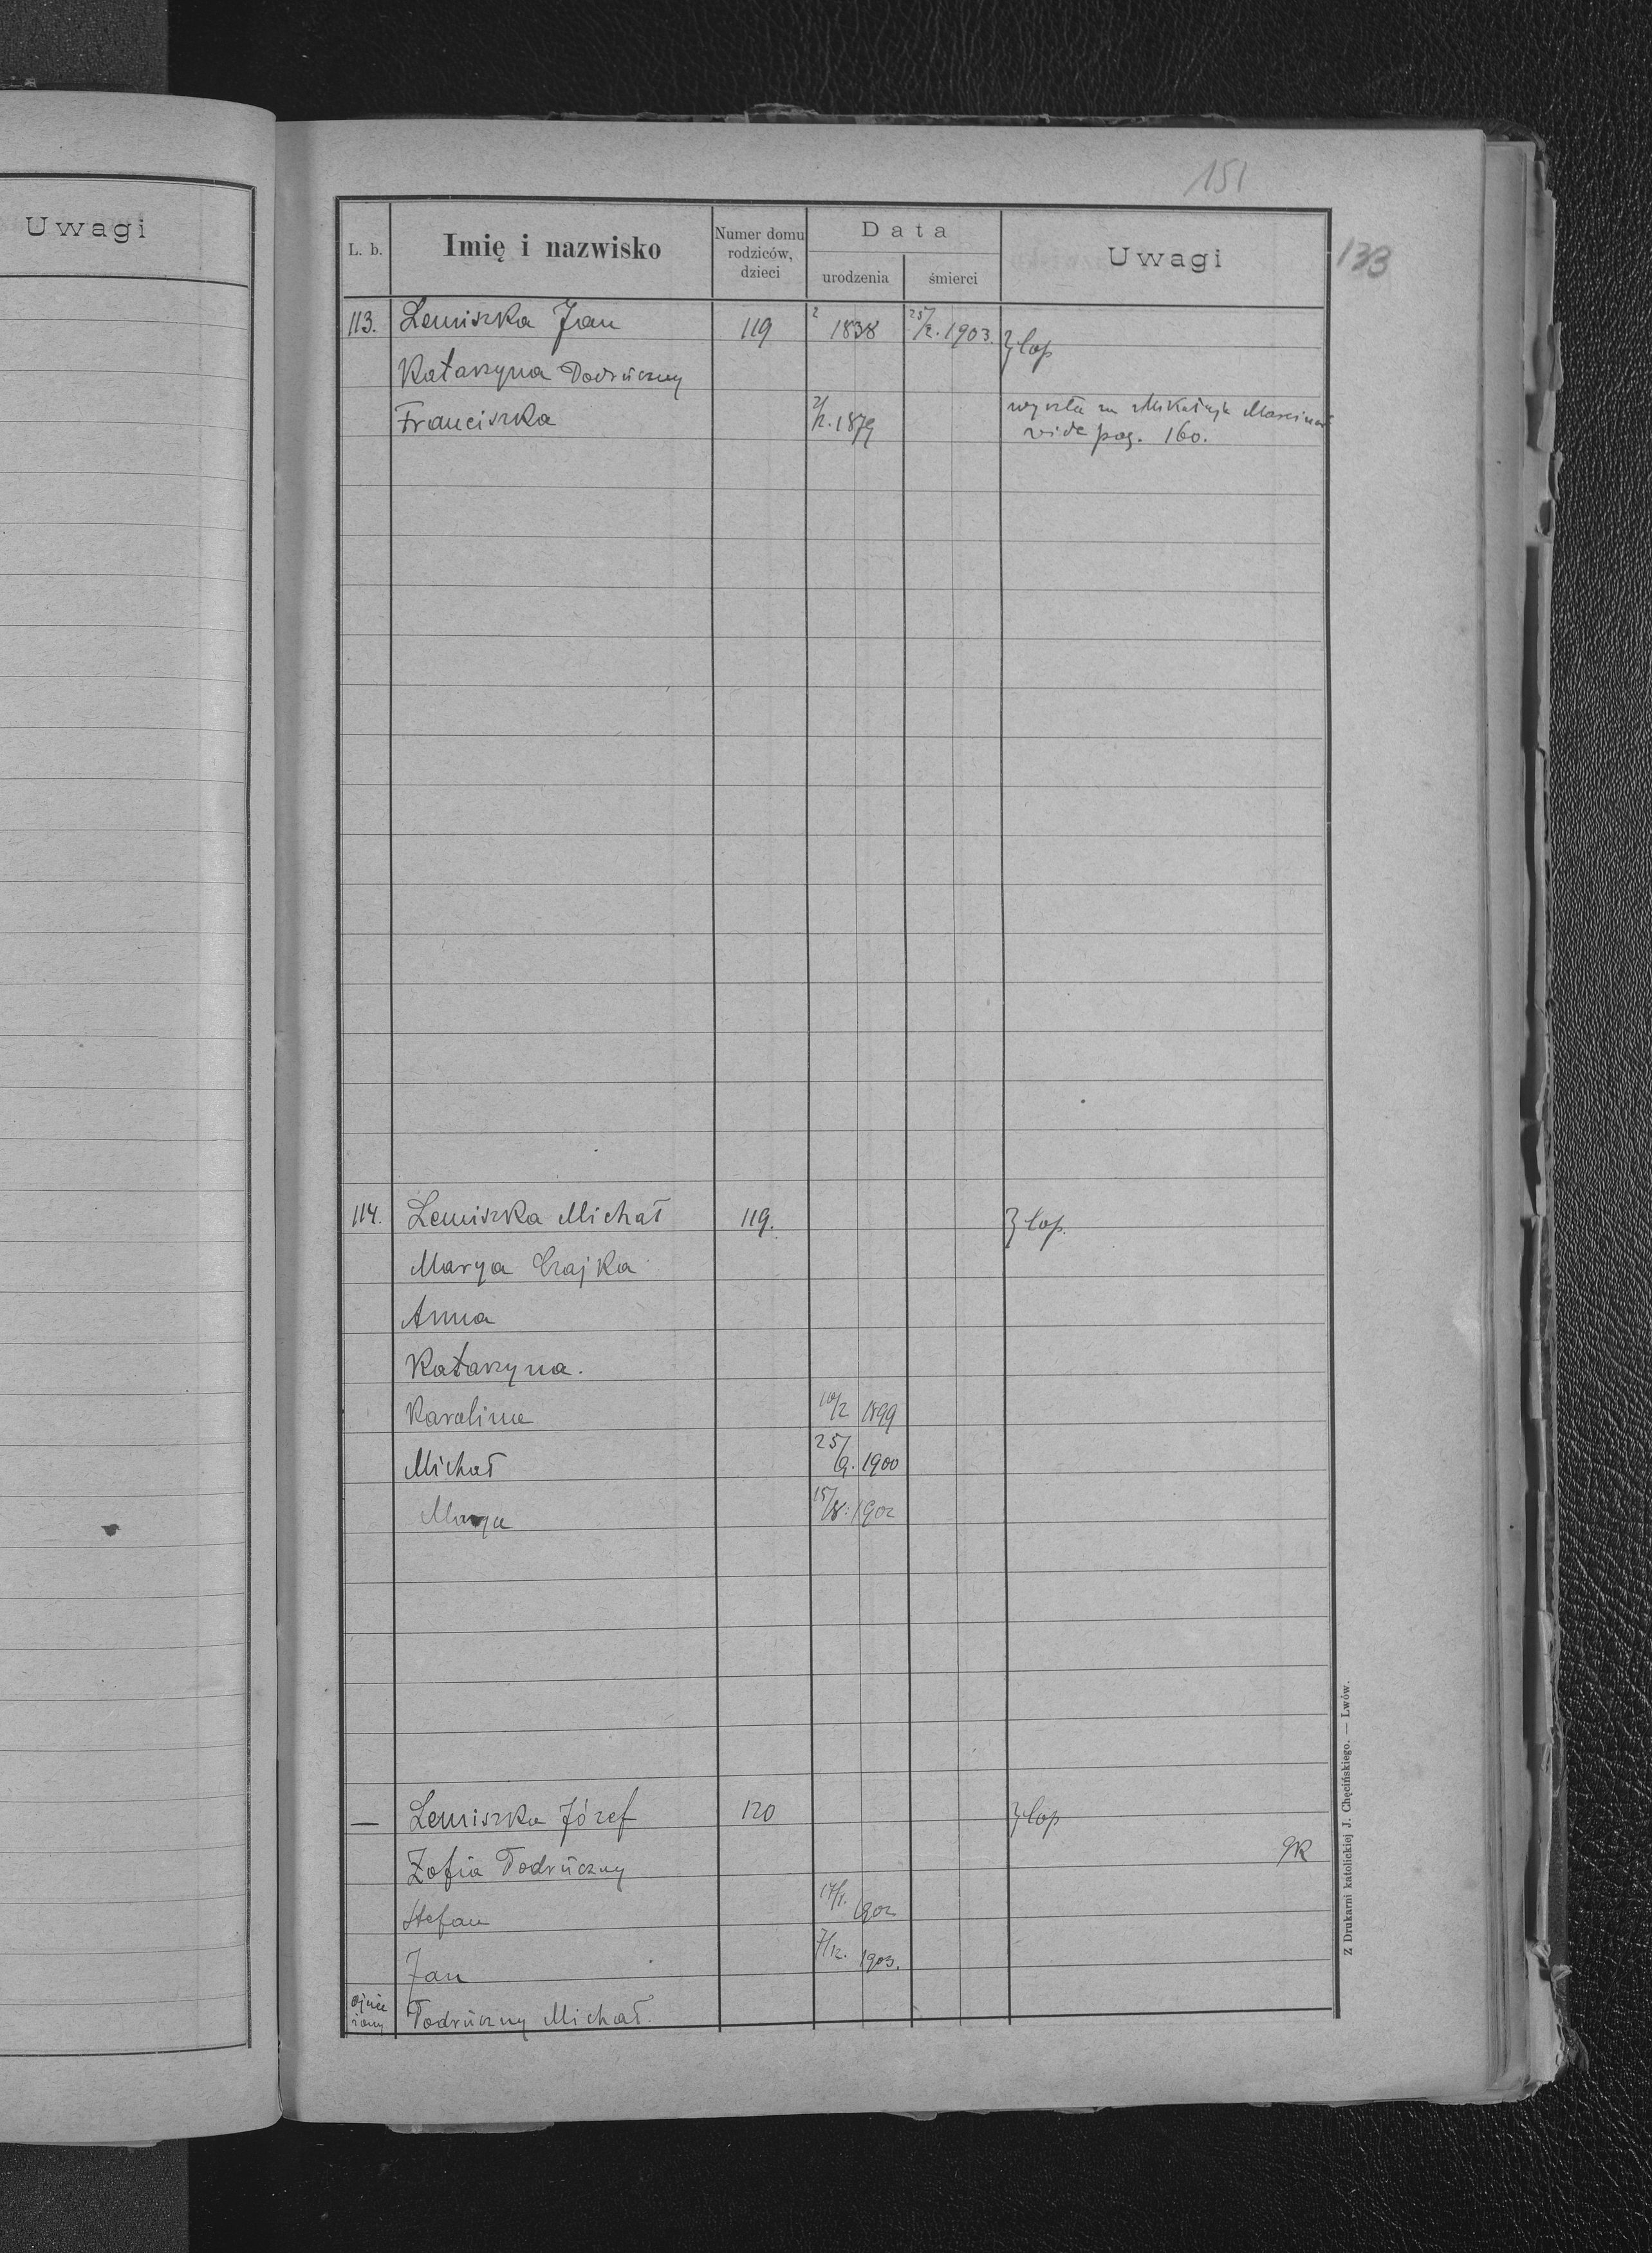 Uwagi
151
133
L. b.
Imię i nazwisko
Numer domu
rodziców,
dzieci
Data
urodzenia
śmierci
Uwagi
113. Lemiszka Jan 119 2 1838 25/2. 1903. } łap
Katarzyna Podrúczny
Franciszka 2/2. 1879 wyszła za Mikołaja
vide pag. 160.
114. Lemiszka Michał 119. } łap.
Marya Czajka
Anna
Katarzyna.
Karolina 10/2 1899
Michał 25/9. 1900
Marya 15/8. 1902
— Lemiszka Józef 120 } łap
Zofia Podrúczny gk
Stefan 17/1. 1902
Jan 7/12. 1903.
Podrúczny Michał.
Z Drukarni katolickiej J. Chęcińskiego. — Lwów.